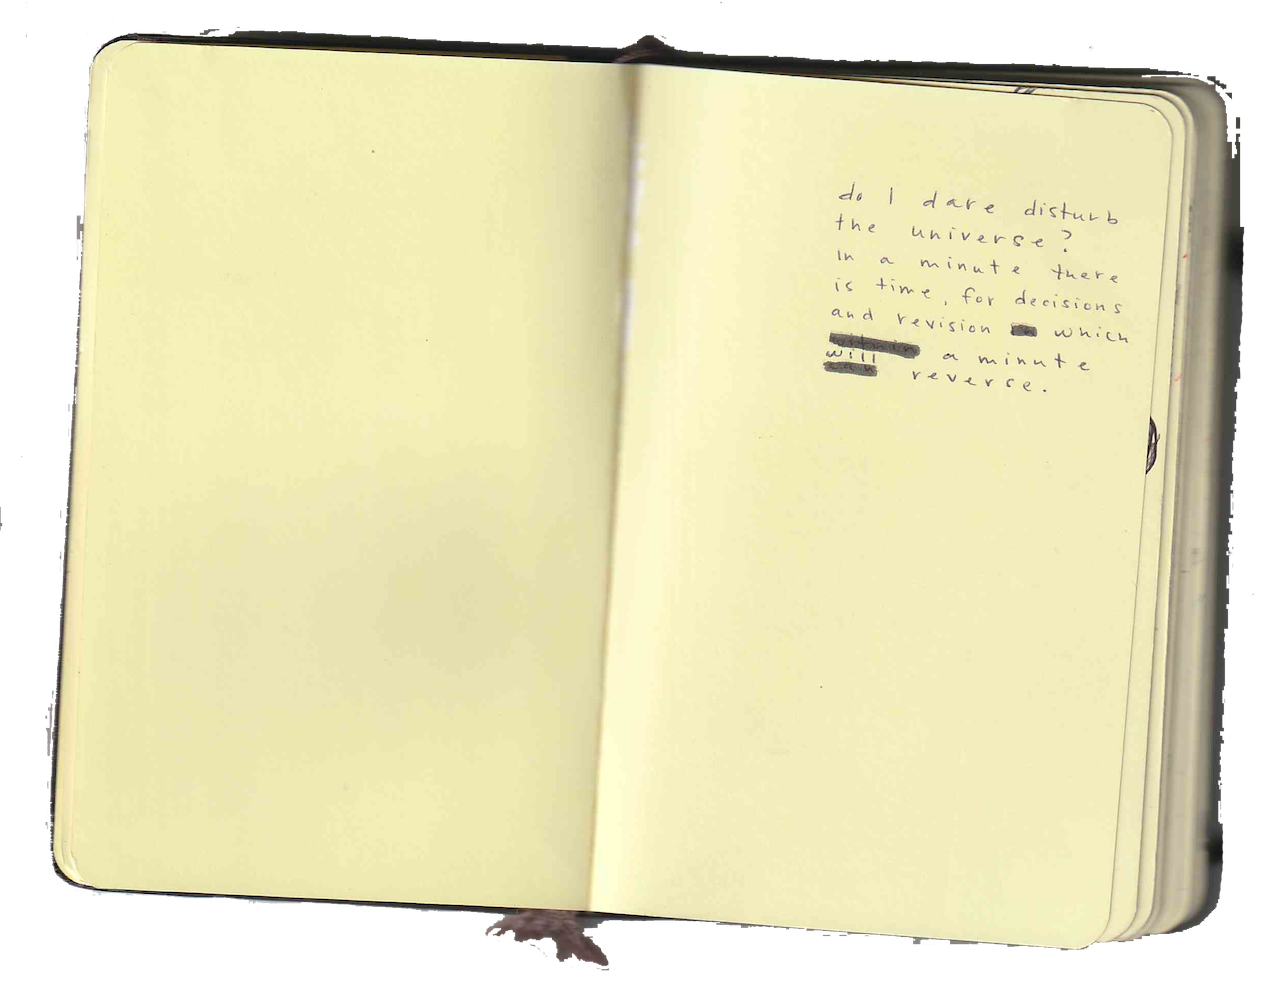 do I dare disturb
the universe?
In a minute there
is time, for decisions
and revision which
will a minute
reverse.